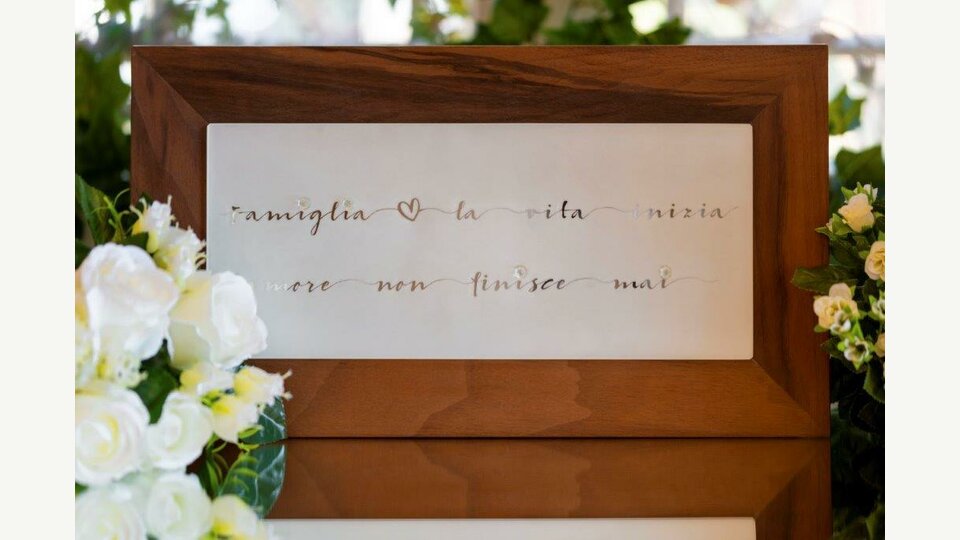 Famiglia ♡ la vita inizia
more non finisce mai